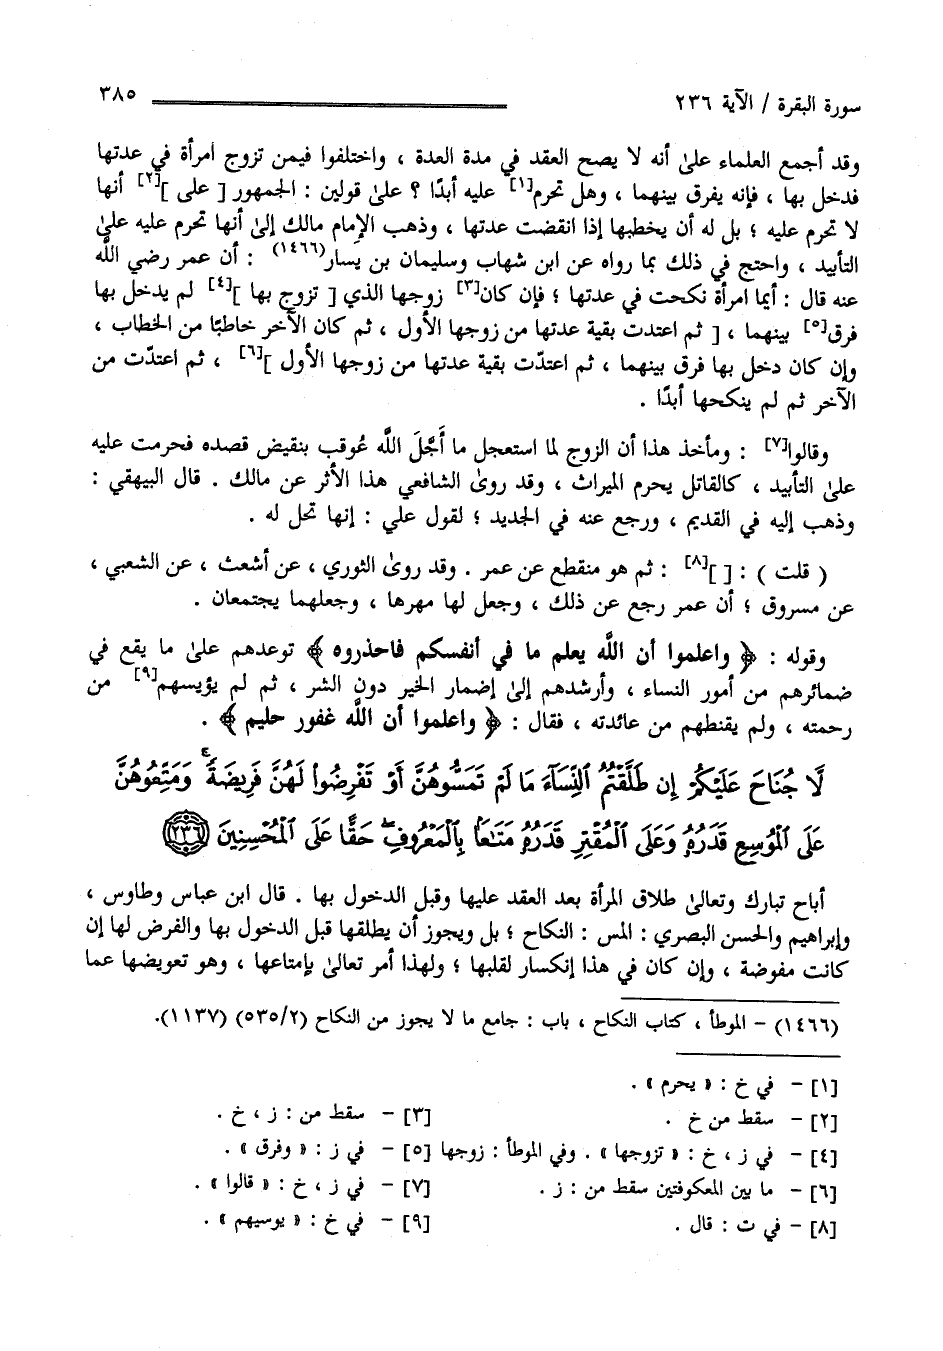 سورة البقرة / الآية ٢٣٦ ٣٨٥
وقد أجمع العلماء علىٰ أنه لا يصح العقد في مدة العدة ، واختلفوا فيمن تزوج امرأة في عدتها
فدخل بها ، فإنه يفرق بينهما ، وهل تحرم[١] عليه أبدًا ؟ علىٰ قولين : الجمهور [ على ][٢] أنها
لا تحرم عليه ؛ بل له أن يخطبها إذا انقضت عدتها ، وذهب الإمام مالك إلىٰ أنها تحرم عليه علىٰ
التأبيد ، واحتج في ذلك بما رواه عن ابن شهاب وسليمان بن يسار(١٤٦٦) : أن عمر رضي اللَّه
عنه قال : أيما امرأة نكحت في عدتها ؛ فإن كان[٣] زوجها الذي [ تزوج بها ][٤] لم يدخل بها
فرق[٥] بينهما ، [ ثم اعتدت بقية عدتها من زوجها الأول ، ثم كان الآخر خاطبًا من الخطاب ،
وإن كان دخل بها فرق بينهما ، ثم اعتدّت بقية عدتها من زوجها الأول ][٦] ، ثم اعتدّت من
الآخر ثم لم ينكحها أبدًا .
وقالوا[٧] : ومأخذ هذا أن الزوج لما استعجل ما أَجَّلَ اللَّه عُوقب بنقيض قصده فحرمت عليه
علىٰ التأبيد ، كالقاتل يحرم الميراث ، وقد روىٰ الشافعي هذا الأثر عن مالك . قال البيهقي :
وذهب إليه في القديم ، ورجع عنه في الجديد ؛ لقول علي : إنها تحل له .
( قلت ) : [ ][٨] : ثم هو منقطع عن عمر . وقد روىٰ الثوري ، عن أشعث ، عن الشعبي ،
عن مسروق ؛ أن عمر رجع عن ذلك ، وجعل لها مهرها ، وجعلهما يجتمعان .
وقوله : ﴿ واعلموا أن اللَّه يعلم ما في أنفسكم فاحذروه ﴾ توعدهم علىٰ ما يقع في
ضمائرهم من أمور النساء ، وأرشدهم إلىٰ إضمار الخير دون الشر ، ثم لم يؤيسهم[٩] من
رحمته ، ولم يقنطهم من عائدته ، فقال : ﴿ واعلموا أن اللَّه غفور حليم ﴾ .
لَّا جُنَاحَ عَلَيْكُمْ إِن طَلَّقْتُمُ ٱلنِّسَآءَ مَا لَمْ تَمَسُّوهُنَّ أَوْ تَفْرِضُوا۟ لَهُنَّ فَرِيضَةً ۚ وَمَتِّعُوهُنَّ
عَلَى ٱلْمُوسِعِ قَدَرُهُۥ وَعَلَى ٱلْمُقْتِرِ قَدَرُهُۥ مَتَـٰعًۢا بِٱلْمَعْرُوفِ ۖ حَقًّا عَلَى ٱلْمُحْسِنِينَ ﴿٢٣٦﴾
أباح تبارك وتعالىٰ طلاق المرأة بعد العقد عليها وقبل الدخول بها . قال ابن عباس وطاوس ،
وإبراهيم والحسن البصري : المس : النكاح ؛ بل ويجوز أن يطلقها قبل الدخول بها والفرض لها إن
كانت مفوضة ، وإن كان في هذا إنكسار لقلبها ؛ ولهذا أمر تعالىٰ بإمتاعها ، وهو تعويضها عما
(١٤٦٦) – الموطأ ، كتاب النكاح ، باب : جامع ما لا يجوز من النكاح (٥٣٥/٢) (١١٣٧).
[١] – في خ : « يحرم » .
[٢] – سقط من خ . [٣] – سقط من : ز ، خ .
[٤] – في ز ، خ : « تزوجها » . وفي الموطأ : زوجها [٥] – في ز : « وفرق » .
[٦] – ما بين المعكوفتين سقط من : ز . [٧] – في ز ، خ : « قالوا » .
[٨] – في ت : قال . [٩] – في خ : « يوسيهم » .